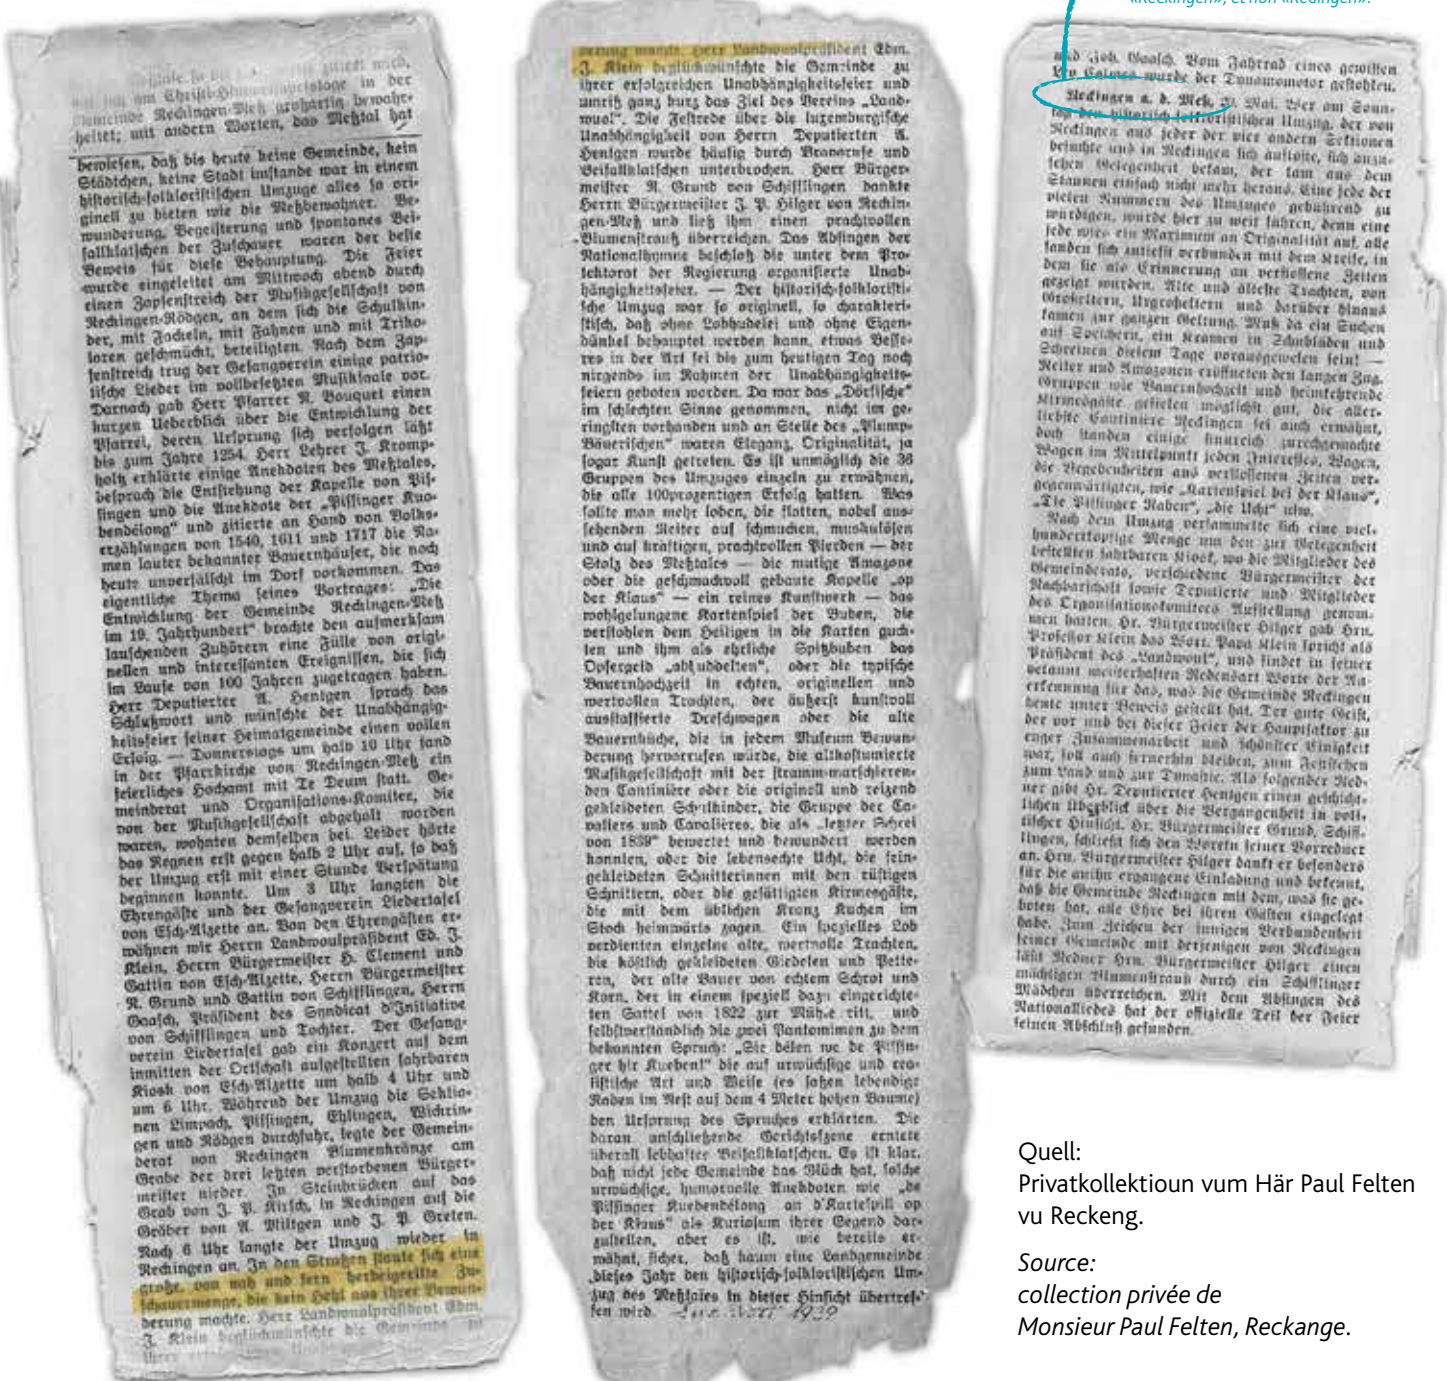 «Reckingen», et non «Redingen».
Gemeinde Reckingen-Meß großartig bewahr-
heitet; mit andern Worten, das Meßtal hat
bewiesen, daß bis heute keine Gemeinde, kein
Städtchen, keine Stadt imstande war in einem
historisch-folkloristischen Umzuge alles so ori-
ginell zu bieten wie die Meßbewohner. Be-
wunderung, Begeisterung und spontanes Bei-
fallklatschen der Zuschauer waren der beste
Beweis für diese Behauptung. Die Feier
wurde eingeleitet am Mittwoch abend durch
einen Zapfenstreich der Musikgesellschaft von
Reckingen-Rödgen, an dem sich die Schulkin-
der, mit Fackeln, mit Fahnen und mit Triko-
loren geschmückt, beteiligten. Nach dem Zap-
fenstreich trug der Gesangverein einige patrio-
tische Lieder im vollbesetzten Musiksaale vor.
Darnach gab Herr Pfarrer N. Bouquet einen
kurzen Ueberblick über die Entwicklung der
Pfarrei, deren Ursprung sich verfolgen läßt
bis zum Jahre 1254. Herr Lehrer J. Kromp-
holtz erklärte einige Anekdoten des Meßtales,
besprach die Entstehung der Kapelle von Pis-
singen und die Anekdote der „Pissinger Kuo-
bendélong" und zitierte an Hand von Volks-
erzählungen von 1540, 1611 und 1717 die Na-
men lauter bekannter Bauernhäuser, die noch
heute unverfälscht im Dorf vorkommen. Das
eigentliche Thema seines Vortrages: „Die
Entwicklung der Gemeinde Reckingen-Meß
im 19. Jahrhundert" brachte den aufmerksam
lauschenden Zuhörern eine Fülle von origi-
nellen und interessanten Ereignissen, die sich
im Laufe von 100 Jahren zugetragen haben.
Herr Deputierter A. Hentgen sprach das
Schlußwort und wünschte der Unabhängig-
keitsfeier seiner Heimatgemeinde einen vollen
Erfolg. — Donnerstags um halb 10 Uhr fand
in der Pfarrkirche von Reckingen-Meß ein
feierliches Hochamt mit Te Deum statt. Ge-
meinderat und Organisations-Komitee, die
von der Musikgesellschaft abgeholt worden
waren, wohnten demselben bei. Leider hörte
das Regnen erst gegen halb 2 Uhr auf, so daß
der Umzug erst mit einer Stunde Verspätung
beginnen konnte. Um 3 Uhr langten die
Ehrengäste und der Gesangverein Liedertafel
von Esch-Alzette an. Von den Ehrengästen er-
wähnen wir Herrn Landwoulpräsident Ed. J.
Klein, Herrn Bürgermeister H. Clement und
Gattin von Esch-Alzette, Herrn Bürgermeister
N. Grund und Gattin von Schifflingen, Herrn
Gaasch, Präsident des Syndicat d'Initiative
von Schifflingen und Tochter. Der Gesang-
verein Liedertafel gab ein Konzert auf dem
inmitten der Ortschaft aufgestellten fahrbaren
Kiosk von Esch-Alzette um halb 4 Uhr und
um 6 Uhr. Während der Umzug die Sektio-
nen Limpach, Pissingen, Ehlingen, Wickrin-
gen und Rödgen durchfuhr, legte der Gemein-
derat von Reckingen Blumenkränze am
Grabe der drei letzten verstorbenen Bürger-
meister nieder. In Steinbrücken auf das
Grab von J. P. Kirsch, in Reckingen auf die
Gräber von A. Miltgen und J. P. Greten.
Nach 6 Uhr langte der Umzug wieder in
Reckingen an. In den Straßen staute sich eine
große, von nah und fern herbeigeeilte Zu-
schauermenge, die kein Hehl aus ihrer Bewun-
derung machte. Herr Landwoulpräsident Edm.
J. Klein beglückwünschte die Gemeinde zu
derung machte. Herr Landwoulpräsident Edm.
J. Klein beglückwünschte die Gemeinde zu
ihrer erfolgreichen Unabhängigkeitsfeier und
umriß ganz kurz das Ziel des Vereins „Land-
wuol". Die Festrede über die luxemburgische
Unabhängigkeit von Herrn Deputierten A.
Hentgen wurde häufig durch Bravorufe und
Beifallklatschen unterbrochen. Herr Bürger-
meister N. Grund von Schifflingen dankte
Herrn Bürgermeister J. P. Hilger von Reckin-
gen-Meß und ließ ihm einen prachtvollen
Blumenstrauß überreichen. Das Absingen der
Nationalhymne beschloß die unter dem Pro-
tektorat der Regierung organisierte Unab-
hängigkeitsfeier. — Der historisch-folkloristi-
sche Umzug war so originell, so charakteri-
stisch, daß ohne Lobhudelei und ohne Eigen-
dünkel behauptet werden kann, etwas Besse-
res in der Art sei bis zum heutigen Tag noch
nirgends im Rahmen der Unabhängigkeits-
feiern geboten worden. Da war das „Dörfische"
im schlechten Sinne genommen, nicht im ge-
ringsten vorhanden und an Stelle des „Plump-
Bäuerischen" waren Eleganz, Originalität, ja
sogar Kunst getreten. Es ist unmöglich die 36
Gruppen des Umzuges einzeln zu erwähnen,
die alle 100prozentigen Erfolg hatten. Was
sollte man mehr loben, die flotten, nobel aus-
sehenden Reiter auf schmucken, muskulösen
und auf kräftigen, prachtvollen Pferden — der
Stolz des Meßtales — die mutige Amazone
oder die geschmackvoll gebaute Kapelle „op
der Klaus" — ein reines Kunstwerk — das
wohlgelungene Kartenspiel der Buben, die
verstohlen dem Heiligen in die Karten guck-
ten und ihm als ehrliche Spitzbuben das
Opfergeld „abluddelten", oder die typische
Bauernhochzeit in echten, originellen und
wertvollen Trachten, der äußerst kunstvoll
ausstaffierte Dreschwagen oder die alte
Bauernküche, die in jedem Museum Bewun-
derung hervorrufen würde, die altkostumierte
Musikgesellschaft mit der stramm-marschieren-
den Cantinière oder die originell und reizend
gekleideten Schulkinder, die Gruppe der Ca-
valiers und Cavalières, die als „letzter Schrei
von 1839" bewertet und bewundert werden
konnten, oder die lebensechte Ucht, die fein-
gekleideten Schnitterinnen mit den rüstigen
Schnittern, oder die gesättigten Kirmesgäste,
die mit dem üblichen Kranz Kuchen im
Stoch heimwärts zogen. Ein spezielles Lob
verdienten einzelne alte, wertvolle Trachten,
die köstlich gekleideten Giedelen und Pette-
ren, der alte Bauer von echtem Schrot und
Korn, der in einem speziell dazu eingerichte-
ten Sattel von 1822 zur Mühle ritt, und
selbstverständlich die zwei Pantomimen zu dem
bekannten Spruch: „Sie délen we de Pissin-
ger hir Kueben!" die auf urwüchsige und rea-
listische Art und Weise (es saßen lebendige
Raben im Nest auf dem 4 Meter hohen Baume)
den Ursprung des Spruches erklärten. Die
daran anschließende Gerichtsszene erntete
überall lebhaftes Beifallklatschen. Es ist klar,
daß nicht jede Gemeinde das Glück hat, solche
urwüchsige, humorvolle Anekdoten wie „de
Pissinger Kuebendélong an d'Kartespill op
der Klaus" als Kuriosum ihrer Gegend dar-
zustellen, aber es ist, wie bereits er-
wähnt, sicher, daß kaum eine Landgemeinde
dieses Jahr den historisch-folkloristischen Um-
zug des Meßtales in dieser Hinsicht übertref-
fen wird. 1939
und Joh. Gaasch. Vom Fahrrad eines gewissen
wurde der Dynamomotor gestohlen.
Reckingen a. d. Meß, Mai. Wer am Sonn-
tag den historisch-folkloristischen Umzug, der von
Reckingen aus jeder der vier andern Sektionen
besuchte und in Reckingen sich auflöste, sich anzu-
sehen Gelegenheit bekam, der kam aus dem
Staunen einfach nicht mehr heraus. Eine jede der
vielen Nummern des Umzuges gebührend zu
würdigen, würde hier zu weit führen, denn eine
jede wies ein Maximum an Originalität auf, alle
fanden sich zutiefst verbunden mit dem Kreise, in
dem sie als Erinnerung an verflossene Zeiten
gezeigt wurden. Alte und älteste Trachten, von
Großeltern, Urgroßeltern und darüber hinaus
kamen zur ganzen Geltung. Muß da ein Suchen
auf Speichern, ein Kramen in Schubladen und
Schreinen diesem Tage vorausgewesen sein! —
Reiter und Amazonen eröffneten den langen Zug.
Gruppen wie Bauernhochzeit und heimkehrende
Kirmesgäste gefielen möglichst gut, die aller-
liebste Cantinière Reckingen sei auch erwähnt,
doch standen einige sinnreich zurechtgemachte
Wagen im Mittelpunkt jeden Interesses, Wagen,
die Begebenheiten aus verflossenen Zeiten ver-
gegenwärtigten, wie „Kartenspiel bei der Klaus",
„Die Pissinger Raben", „die Ucht" usw.
Nach dem Umzug versammelte sich eine viel-
hundertköpfige Menge um den zur Gelegenheit
bestellten fahrbaren Kiosk, wo die Mitglieder des
Gemeinderats, verschiedene Bürgermeister der
Nachbarschaft sowie Deputierte und Mitglieder
des Organisationskomitees Aufstellung genom-
men hatten. Hr. Bürgermeister Hilger gab Hrn.
Professor Klein das Wort. Papa Klein spricht als
Präsident des „Landwoul", und findet in seiner
bekannt meisterhaften Redensart Worte der An-
erkennung für das, was die Gemeinde Reckingen
heute unter Beweis gestellt hat. Der gute Geist,
der vor und bei dieser Feier der Hauptfaktor zu
enger Zusammenarbeit und schönster Einigkeit
war, soll auch fernerhin bleiben, zum Feststehen
zum Land und zur Dynastie. Als folgender Red-
ner gibt Hr. Deputierter Hentgen einen geschicht-
lichen Überblick über die Vergangenheit in poli-
tischer Hinsicht. Hr. Bürgermeister Grund, Schiff-
lingen, schließt sich den Worten seiner Vorredner
an. Hrn. Bürgermeister Hilger dankt er besonders
für die an ihn ergangene Einladung und bekennt,
daß die Gemeinde Reckingen mit dem, was sie ge-
boten hat, alle Ehre bei ihren Gästen eingelegt
habe. Zum Zeichen der innigen Verbundenheit
seiner Gemeinde mit derjenigen von Reckingen
läßt Redner Hrn. Bürgermeister Hilger einen
mächtigen Blumenstrauß durch ein Schifflinger
Mädchen überreichen. Mit dem Absingen des
Nationalliedes hat der offizielle Teil der Feier
seinen Abschluß gefunden.
Quell:
Privatkollektioun vum Här Paul Felten
vu Reckeng.
Source:
collection privée de
Monsieur Paul Felten, Reckange.